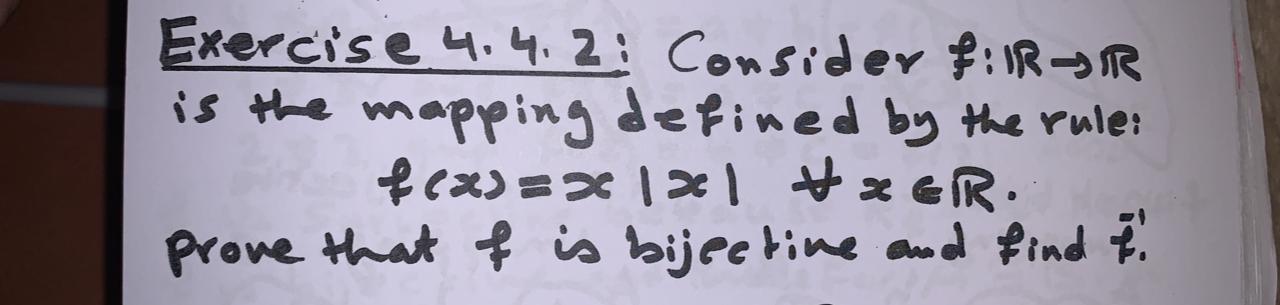 Exercise 4.4.2: Consider f:ℝ→ℝ
is the mapping defined by the rule:
f(x)=x|x| ∀ x∈ℝ.
prove that f is bijective and find f⁻¹.